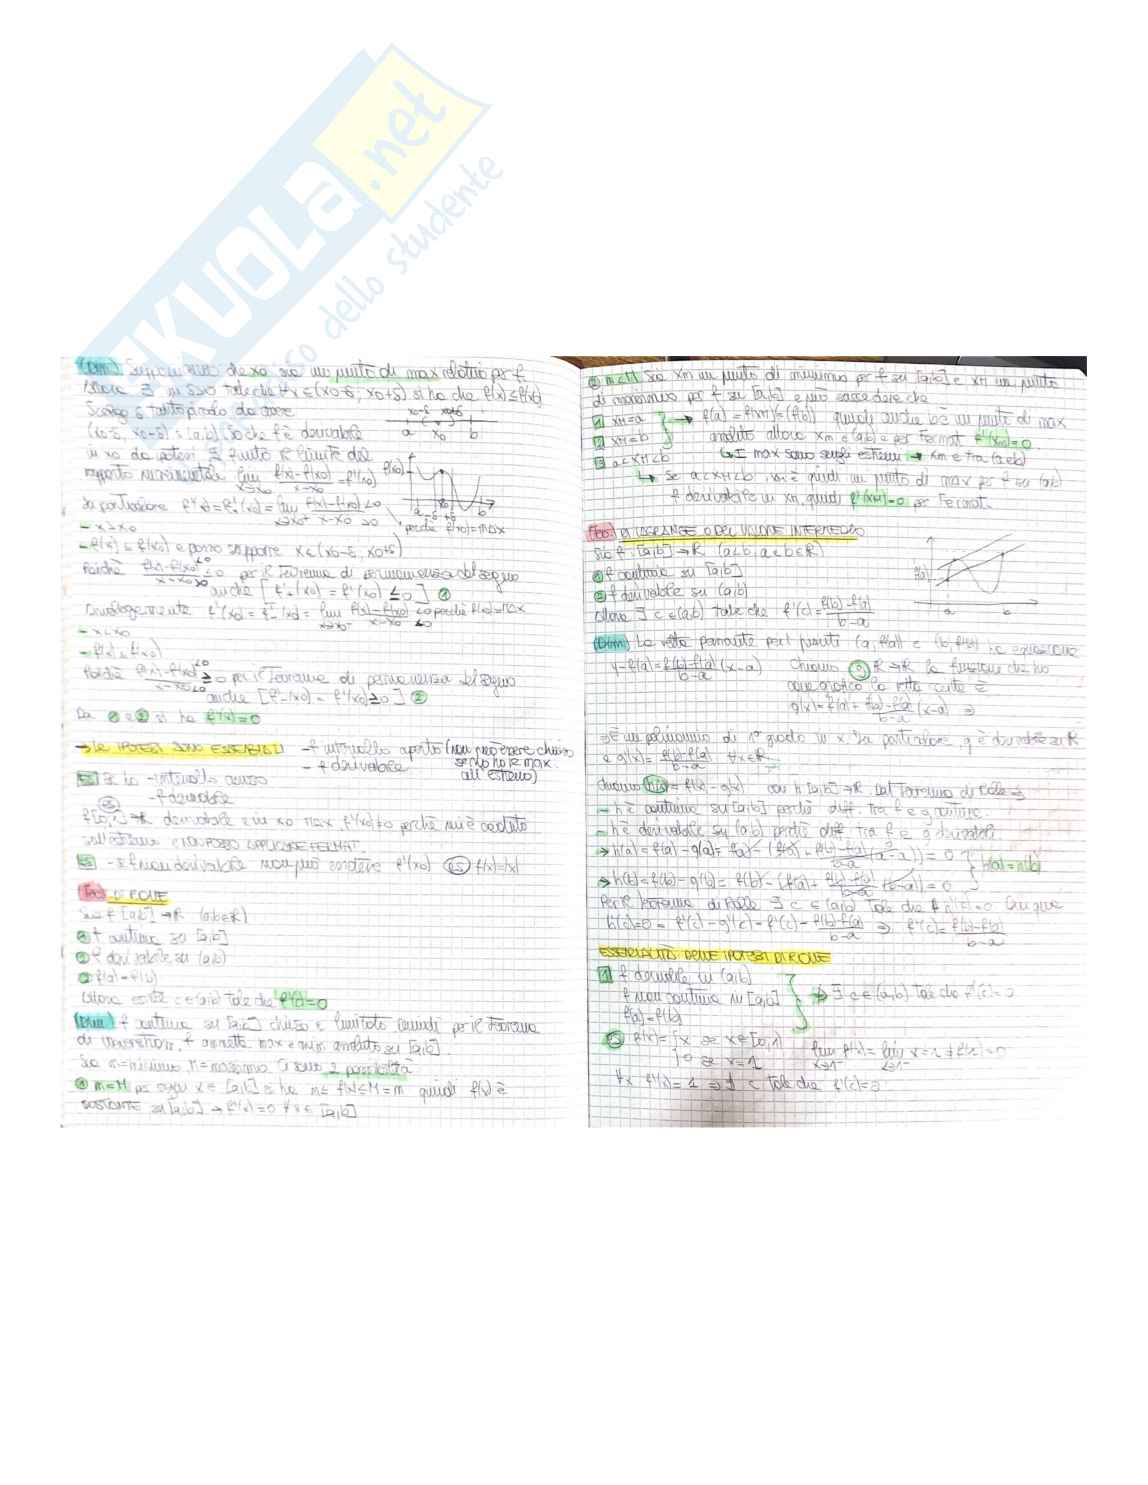 SKUOLA.net
dello studente
(Dim) Supponiamo che x0 sia un punto di max relativo per f
allora ∃ un δ>0 tale che ∀x∈(x0-δ, x0+δ) si ha che f(x)≤f(x0)
Scelgo δ tanto piccolo da avere
x0-δ x0+δ
a x0 b
so che f è derivabile
in x0
rapporto incrementale lim f(x)-f(x0) / x-x0 = f'(x0)
x→x0
f(x0)
a -δ +δ b
In particolare f'(x0) = f'+(x0) = lim f(x)-f(x0) ≤0 / x-x0 >0
x→x0+
perché f(x0)=max
- x>x0
- f(x) ≤ f(x0) e posso supporre x<(x0-δ, x0+δ)
Poiché f(x)-f(x0) ≤0 / x-x0 >0 ≤0 per il Teorema di permanenza del segno
anche [f'+(x0) = f'(x0) ≤0] 1
Analogamente f'(x0) = f'-(x0) = lim f(x)-f(x0) / x-x0 ≤0 perché f(x0)=max
x→x0-
- x<x0
- f(x) ≤ f(x0)
Poiché f(x)-f(x0) ≤0 / x-x0 <0 ≥0 per il Teorema di permanenza del segno
anche [f'-(x0) = f'(x0) ≥0] 2
Da 1 e 2 si ha f'(x0)=0
→ LE IPOTESI SONO ESSENZIALI - f intervallo aperto (non può essere chiuso
- f derivabile se no ho il max
all'estremo)
ES Se ho - intervallo chiuso
- f derivabile
ES
derivabile e in x0 max f'(x0)≠0 perché mi è caduto
sull'estremo e NON POSSO APPLICARE FERMAT.
ES - se f non derivabile non può esistere f'(x0) ES f(x)=|x|
Teo DI ROLLE
Sia f [a,b] → R (a,b∈R)
1 f continua su [a,b]
2 f derivabile su (a,b)
3 f(a)=f(b)
Allora esiste c∈(a,b) tale che f'(c)=0
(Dim) f continua su [a,b] chiuso e limitato quindi per il Teorema
di Weierstrass, f ammette max e min assoluto su [a,b].
Sia m=minimo, M=massimo. Ci sono 2 possibilità
1 m=M per ogni x∈[a,b] si ha m≤f(x)≤M=m quindi f(x) è
COSTANTE su [a,b] → f'(x)=0 ∀x∈[a,b]
2 m<M Sia xm un punto di minimo per f su [a,b] e xM un punto
di massimo per f su [a,b] e può succedere che
1 xM=a → f(a)=f(xM)=f(b) quindi anche b è un punto di max
2 xM=b assoluto allora xm∈(a,b) e per Fermat f'(xm)=0
3 a<xM<b ↳ I max sono sugli estremi → xm è tra (a e b)
↳ Se a<xM<b, xM è quindi un punto di max per f su (a,b)
f derivabile in xM, quindi f'(xM)=0 per Fermat.
Teo DI LAGRANGE O DEL VALORE INTERMEDIO
Sia f: [a,b] → R (a<b, a e b∈R)
1 f continua su [a,b]
2 f derivabile su (a,b)
Allora ∃ c∈(a,b) tale che f'(c) = f(b)-f(a) / b-a
f(a)
a b
(Dim) La retta passante per i punti (a, f(a)) e (b, f(b)) ha equazione
y-f(a) = f(b)-f(a) / b-a (x-a) Chiamo g R→R la funzione che ha
come grafico la retta cioè è
g(x) = f(a) + f(b)-f(a) / b-a (x-a) ⇒
⇒ È un polinomio di 1° grado in x. In particolare, g è derivabile su R
e g'(x) = f(b)-f(a) / b-a ∀x∈R
Chiamo h(x) = f(x)-g(x) con h [a,b] → R. Dal Teorema di Rolle ⇒
- h è continua su [a,b] perché diff. tra f e g continue.
- h è derivabile su (a,b) perché diff tra f e g derivabili.
→ h(a) = f(a)-g(a) = f(a) - (f(a) + f(b)-f(a) / b-a (a-a)) = 0
h(a)=h(b)
→ h(b) = f(b)-g(b) = f(b) - [f(a) + f(b)-f(a) / b-a (b-a)] = 0
Per il Teorema di Rolle ∃ c∈(a,b) tale che h'(c)=0. Dunque
h'(c)=0 = f'(c)-g'(c) = f'(c) - f(b)-f(a) / b-a ⇒ f'(c) = f(b)-f(a) / b-a
ESSENZIALITÀ DELLE IPOTESI DI ROLLE
1 f derivabile in (a,b)
f non continua su [a,b] ⇒ ∄ c∈(a,b) tale che f'(c)=0
f(a)=f(b)
ES f(x) = { x se x∈[0,1)
0 se x=1
lim f(x) = lim x = 1 ≠ f(1) = 0
x→1- x→1-
∀x f'(x)=1 ⇒ ∄ c tale che f'(c)=0